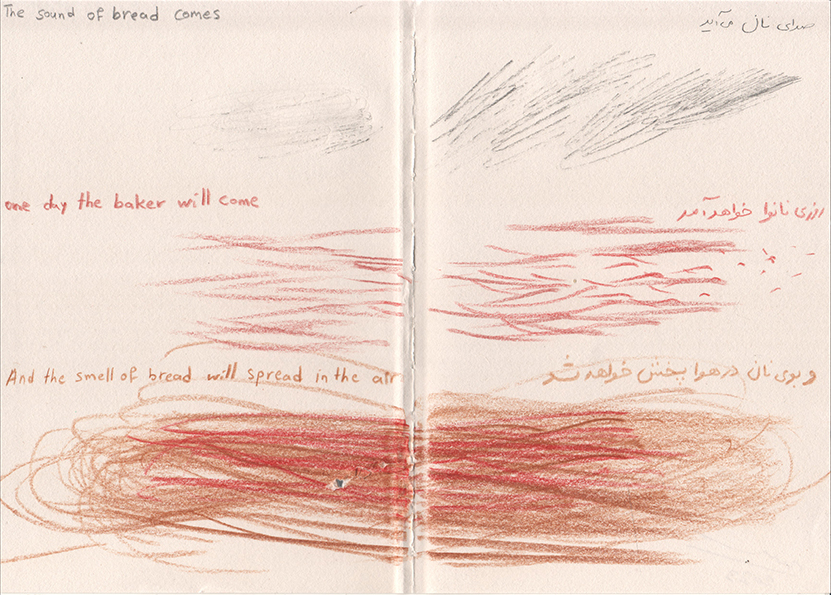 The sound of bread comes
صدای نان می‌آید
one day the baker will come
روزی نانوا خواهد آمد
And the smell of bread will spread in the air
و بوی نان در هوا پخش خواهد شد